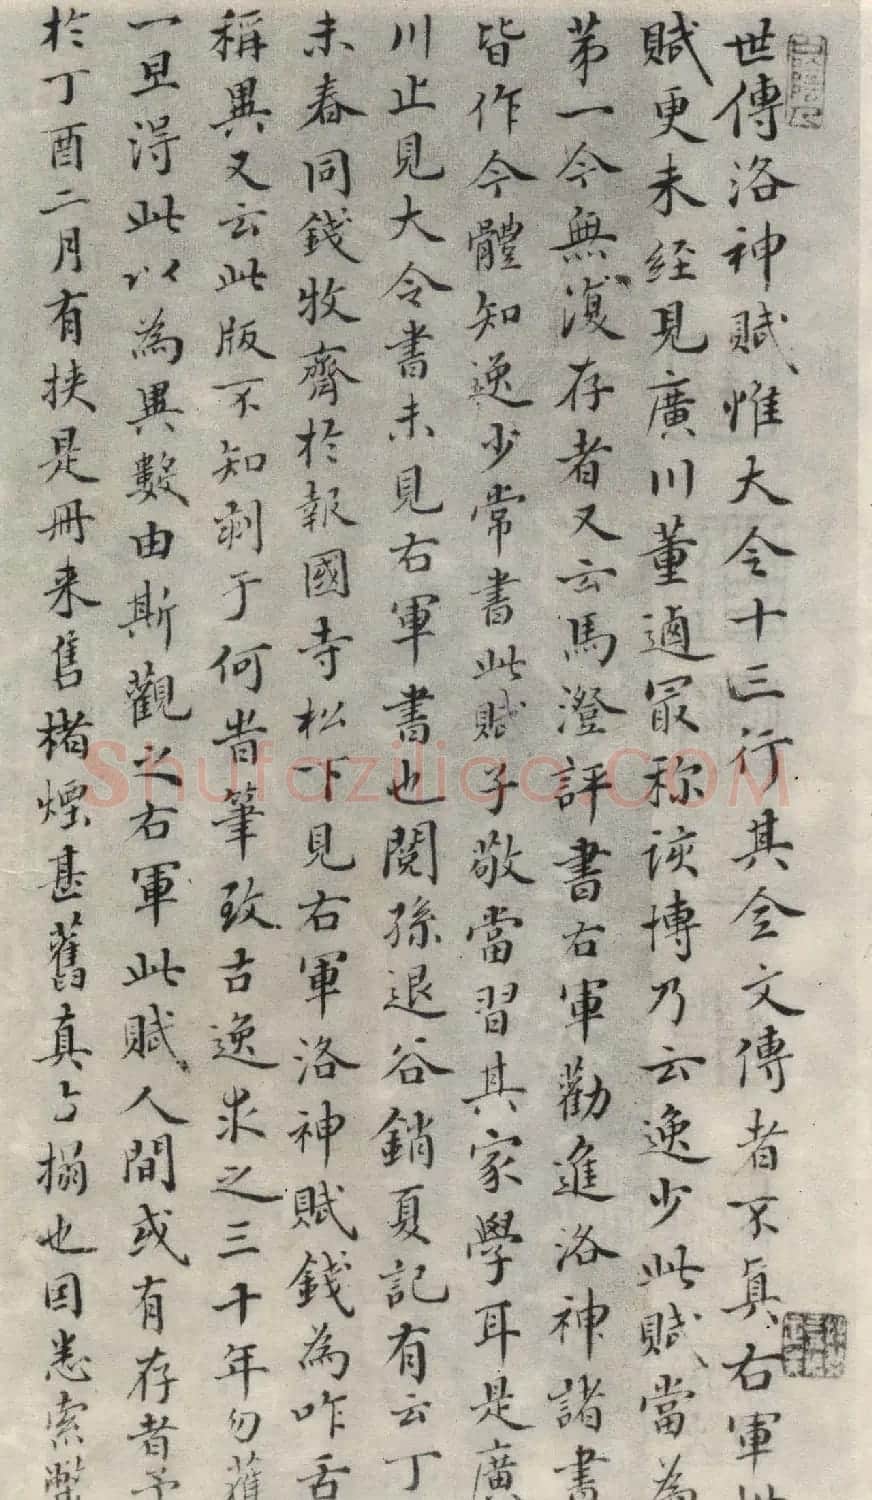 世傳洛神賦惟大令十三行其全文傳者不真右軍此
賦更未經見廣川董逌最称該博乃云逸少此賦當為
苐一今無復存者又云馬澄評書右軍勸進洛神諸書
皆作今體知逸少常書此賦子敬當習其家學耳是廣
川止見大令書未見右軍書也閱孫退谷銷夏記有云丁
未春同錢牧齋於報國寺松下見右軍洛神賦錢為咋舌
稱異又云此版不知刻于何昔筆致古逸求之三十年勿獲
一旦得此以為異數由斯觀之右軍此賦人間或有存者予
於丁酉二月有挾是冊来售楮煙甚舊真㇉搨也因悉索
Shufaziliao.COM